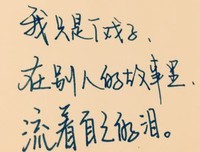 我只是个戏子、
在别人的故事里、
流着自己的泪。